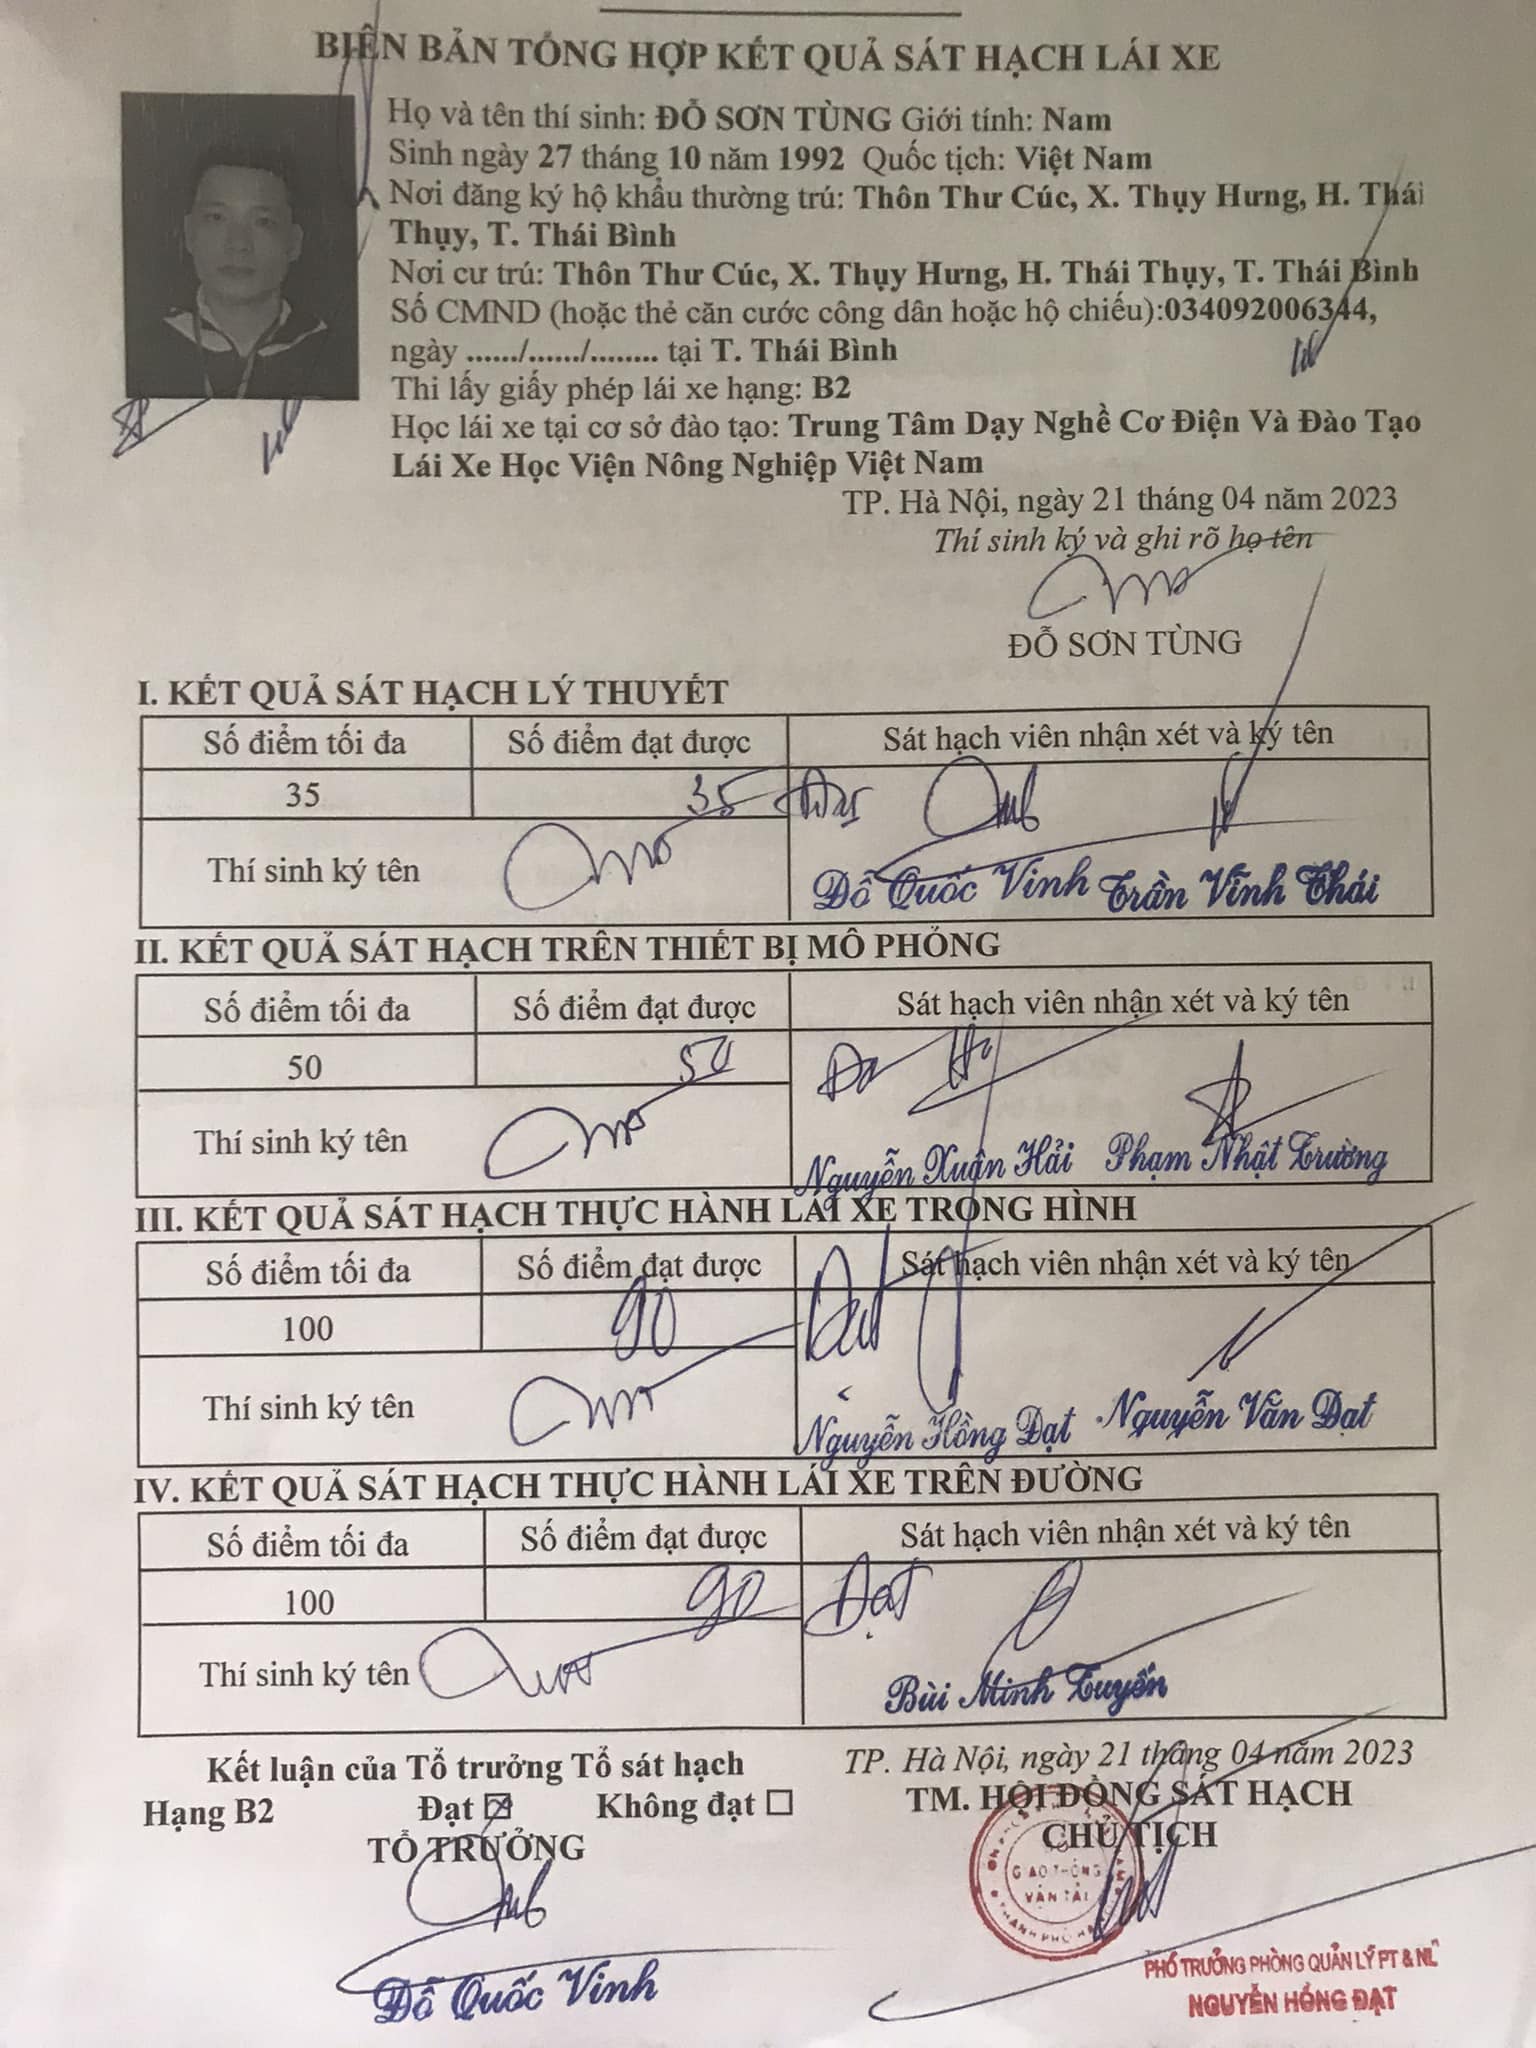 BIÊN BẢN TỔNG HỢP KẾT QUẢ SÁT HẠCH LÁI XE
Họ và tên thí sinh: ĐỖ SƠN TÙNG Giới tính: Nam
Sinh ngày 27 tháng 10 năm 1992 Quốc tịch: Việt Nam
Nơi đăng ký hộ khẩu thường trú: Thôn Thư Cúc, X. Thụy Hưng, H. Thái
Thụy, T. Thái Bình
Nơi cư trú: Thôn Thư Cúc, X. Thụy Hưng, H. Thái Thụy, T. Thái Bình
Số CMND (hoặc thẻ căn cước công dân hoặc hộ chiếu):034092006344,
ngày ....../....../........ tại T. Thái Bình
Thi lấy giấy phép lái xe hạng: B2
Học lái xe tại cơ sở đào tạo: Trung Tâm Dạy Nghề Cơ Điện Và Đào Tạo
Lái Xe Học Viện Nông Nghiệp Việt Nam
TP. Hà Nội, ngày 21 tháng 04 năm 2023
Thí sinh ký và ghi rõ họ tên
ĐỖ SƠN TÙNG
I. KẾT QUẢ SÁT HẠCH LÝ THUYẾT
Số điểm tối đa Số điểm đạt được Sát hạch viên nhận xét và ký tên
35 35
Thí sinh ký tên Đỗ Quốc Vinh Trần Vĩnh Thái
II. KẾT QUẢ SÁT HẠCH TRÊN THIẾT BỊ MÔ PHỎNG
Số điểm tối đa Số điểm đạt được Sát hạch viên nhận xét và ký tên
50 50
Thí sinh ký tên Nguyễn Xuân Hải Phạm Nhật Trường
III. KẾT QUẢ SÁT HẠCH THỰC HÀNH LÁI XE TRONG HÌNH
Số điểm tối đa Số điểm đạt được Sát hạch viên nhận xét và ký tên
100 90 Đạt
Thí sinh ký tên Nguyễn Hồng Đạt Nguyễn Văn Đạt
IV. KẾT QUẢ SÁT HẠCH THỰC HÀNH LÁI XE TRÊN ĐƯỜNG
Số điểm tối đa Số điểm đạt được Sát hạch viên nhận xét và ký tên
100 90 Đạt
Thí sinh ký tên Bùi Minh Tuyến
Kết luận của Tổ trưởng Tổ sát hạch
Hạng B2 Đạt ☒ Không đạt ☐
TỔ TRƯỞNG
Đỗ Quốc Vinh
TP. Hà Nội, ngày 21 tháng 04 năm 2023
TM. HỘI ĐỒNG SÁT HẠCH
CHỦ TỊCH
GIAO THÔNG
VẬN TẢI
PHÓ TRƯỞNG PHÒNG QUẢN LÝ PT & NL
NGUYỄN HỒNG ĐẠT